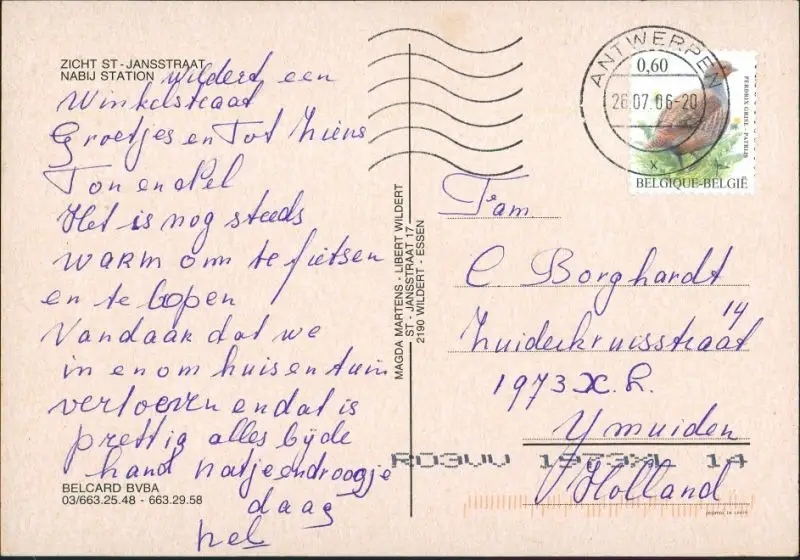 ZICHT ST - JANSSTRAAT
NABIJ STATION Wildert een
Winkelstraat
Groetjes en Tot Ziens
Ton en Nel
Het is nog steeds
warm om te fietsen
en te lopen
Vandaar dat we
in en om huis en tuin
vertoeven en dat is
prettig alles bij de
hand natje en droogje
daag
Nel
BELCARD BVBA
03/663.25.48 - 663.29.58
MAGDA MARTENS - LIBERT WILDERT
ST - JANSSTRAAT 17
2190 WILDERT - ESSEN
ANTWERPEN
26.07.06-20
0,60
PERDRIX GRISE - PATRIJS
BELGIQUE-BELGIË
Fam.
C Borghardt
Zuiderkruisstraat 14
1973 X.L.
Ymuiden
1973XL 14
Holland